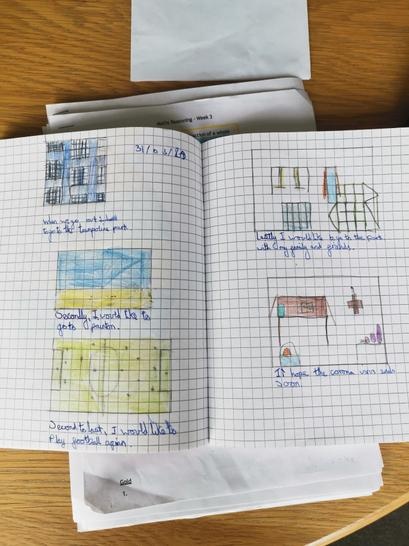 Maths Reasoning - Week 3
of a whole
When we go out I would
to go to the trampoline park
Secondly, I would like to
go to
Second to last, I would like to
Play football again.
Lastly I would like to go to the Park
with my family and friends.
I hope the corona virus ends
Soon.
Gold
1.